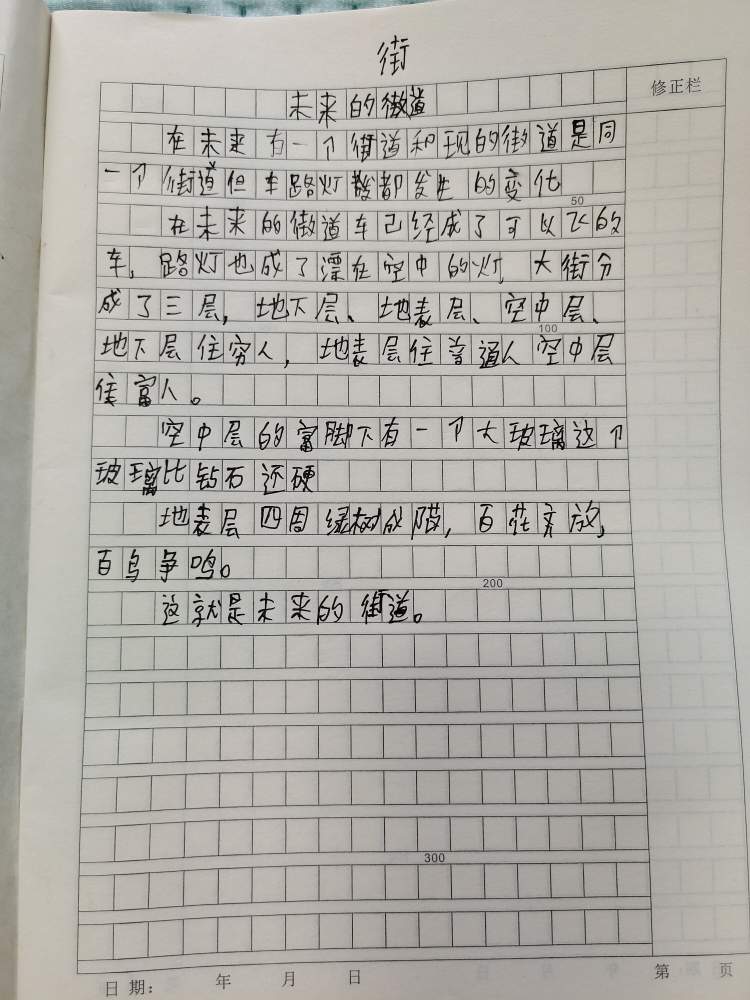 街
修正栏
未来的街道
在未来有一个街道和现的街道是同
一个街道但车路灯都发生的变化
50
在未来的街道车已经成了可以飞的
车，路灯也成了漂在空中的灯，大街分
成了三层，地下层、地表层、空中层、
100
地下层住穷人，地表层住普通人空中层
住富人。
空中层的富脚下有一个大玻璃这个
玻璃比钻石还硬
地表层四周绿树成阴，百花齐放，
百鸟争鸣。
200
这就是未来的街道。
300
日期： 年 月 日
第 页